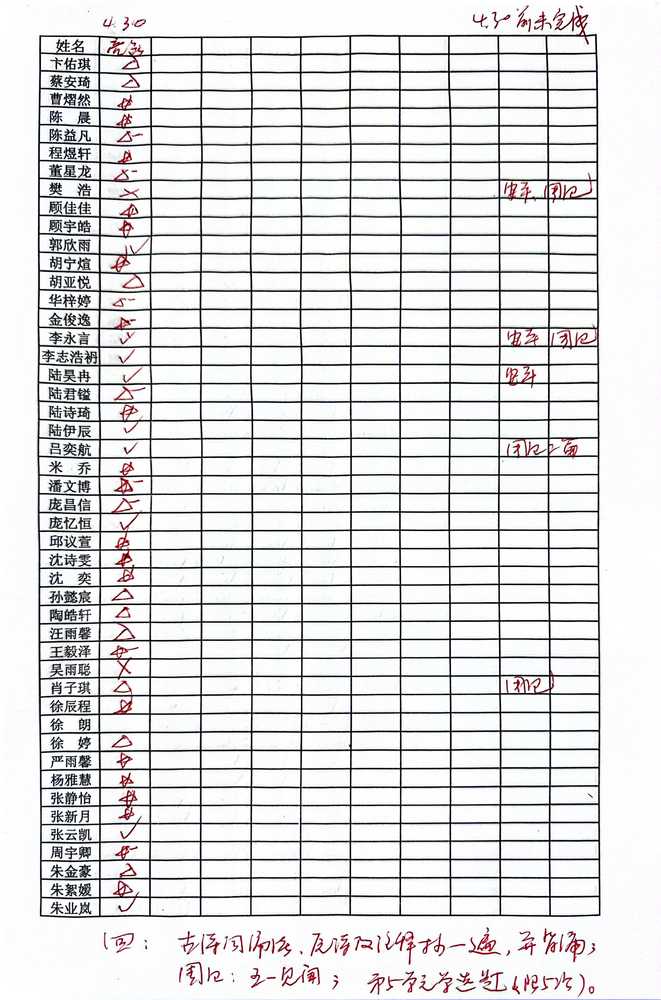 4.30 4.30前未完成
姓名
卞佑琪 △
蔡安琦 △
曹熠然 ☆
陈 晨 ☆
陈益凡 △-
程煜轩 ☆
董星龙 △-
樊 浩 × 周记
顾佳佳 ☆
顾宇皓 ☆
郭欣雨 ✓
胡宁煊 ☆
胡亚悦 △
华梓婷 △-
金俊逸 ☆-
李永言 ✓ 周记
李志浩祤 ✓
陆昊冉 ✓
陆君镒 △-
陆诗琦 ☆
陆伊辰 ✓
吕奕航 ✓ 周记二篇
米 乔 ☆
潘文博 ☆-
庞昌信 △-
庞忆恒 ✓
邱议萱 ☆
沈诗雯 ☆
沈 奕 ☆
孙懿宸 △
陶皓轩 △
汪雨馨 △
王毅泽 ☆-
吴雨聪 ×
肖子琪 △ 周记
徐辰程 ☆
徐 朗
徐 婷 △
严雨馨 ☆
杨雅慧 ☆
张静怡 ☆
张新月 ☆
张云凯 ✓
周宇卿 ☆-
朱金豪 △
朱絮媛 ☆
朱业岚 ✓
回: 古诗词诵读、及注释抄一遍,并背诵;
周记:五一见闻;第5单元学选题(限5次)。